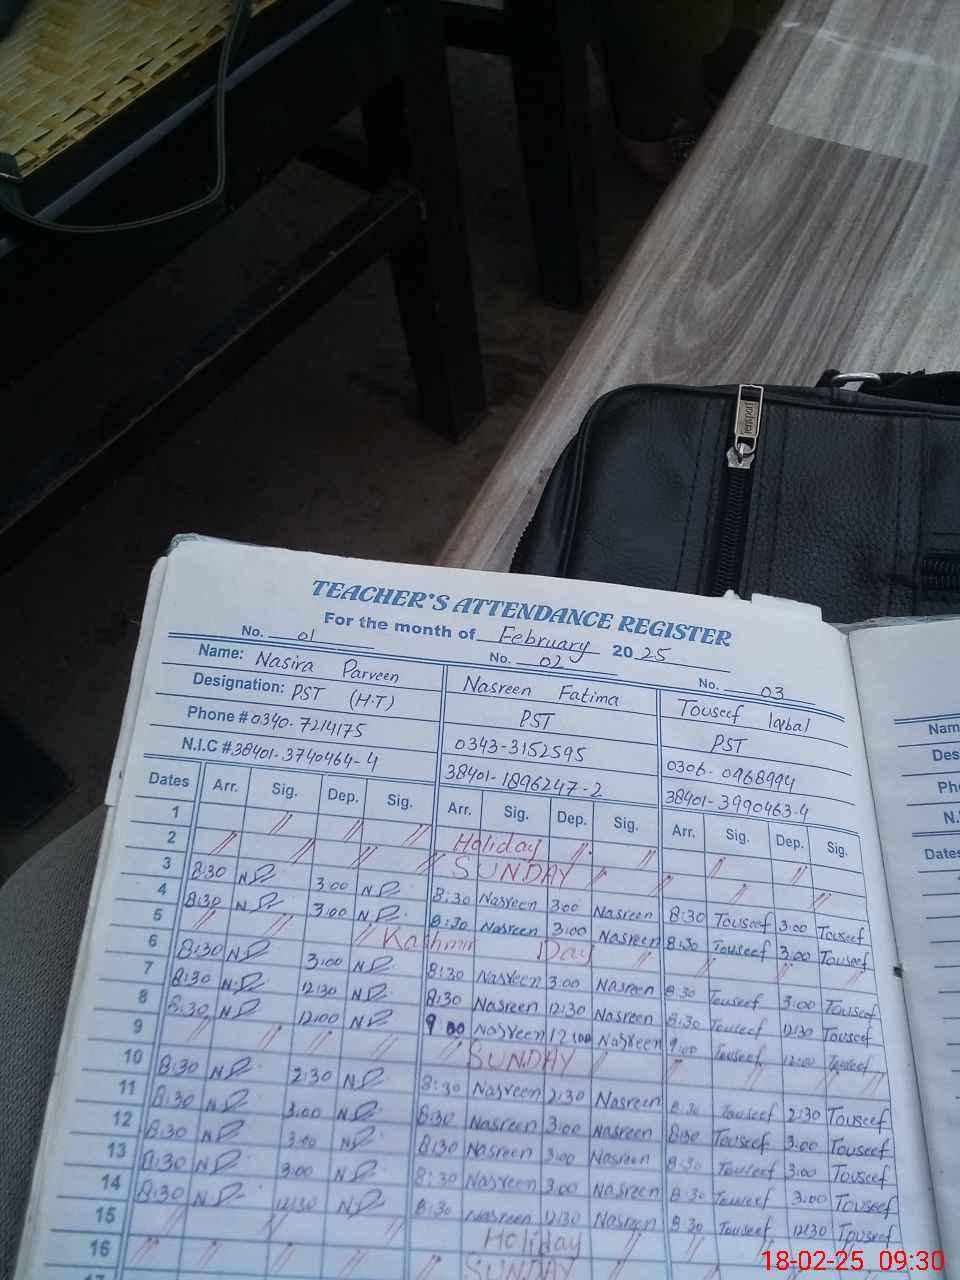 TEACHER'S ATTENDANCE REGISTER
For the month of February 20 25
No. 01 No. 02 No. 03
Name: Nasira Parveen Nasreen Fatima Touseef Iqbal
Designation: PST (H.T) PST PST
Phone # 0340-7214175 0343-3152595 0306-0968994
N.I.C # 38401-3740464-4 38401-1896247-2 38401-3990463-4
Dates Arr. Sig. Dep. Sig. Arr. Sig. Dep. Sig. Arr. Sig. Dep. Sig.
1 Holiday
2 SUNDAY
3 8:30 3:00 8:30 Nasreen 3:00 Nasreen 8:30 Touseef 3:00 Touseef
4 8:30 3:00 8:30 Nasreen 3:00 Nasreen 8:30 Touseef 3:00 Touseef
5 Kashmir Day
6 8:30 3:00 8:30 Nasreen 3:00 Nasreen 8:30 Touseef 3:00 Touseef
7 8:30 12:30 8:30 Nasreen 12:30 Nasreen 8:30 Touseef 12:30 Touseef
8 8:30 12:00 9:00 Nasreen 12:00 Nasreen 9:00 Touseef 12:00 Touseef
9 SUNDAY
10 8:30 2:30 8:30 Nasreen 2:30 Nasreen 8:30 Touseef 2:30 Touseef
11 8:30 3:00 8:30 Nasreen 3:00 Nasreen 8:30 Touseef 3:00 Touseef
12 8:30 3:00 8:30 Nasreen 3:00 Nasreen 8:30 Touseef 3:00 Touseef
13 8:30 3:00 8:30 Nasreen 3:00 Nasreen 8:30 Touseef 3:00 Touseef
14 8:30 12:30 8:30 Nasreen 12:30 Nasreen 8:30 Touseef 12:30 Touseef
15 Holiday
16 SUNDAY
17
Nam
Des
Ph
N.
Dates
18-02-25 09:30